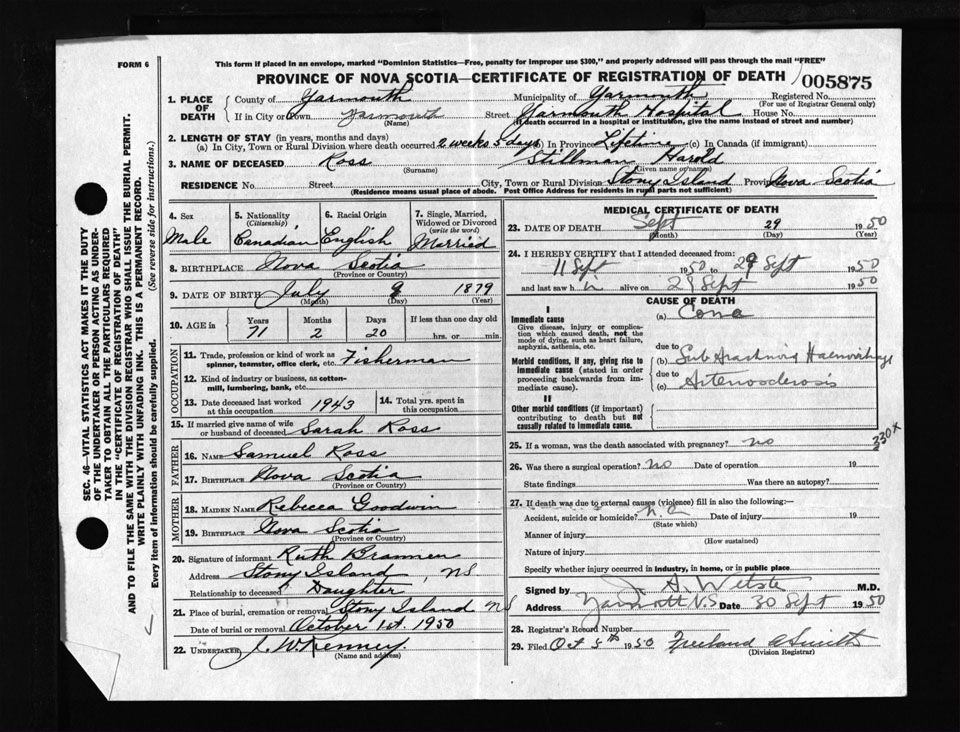 FORM 6
This form if placed in an envelope, marked "Dominion Statistics—Free, penalty for improper use $300," and properly addressed will pass through the mail "FREE"
PROVINCE OF NOVA SCOTIA—CERTIFICATE OF REGISTRATION OF DEATH
005875
1. PLACE OF DEATH
County of Yarmouth Municipality of Yarmouth Registered No.
(For use of Registrar General only)
If in City or Town Yarmouth Street Yarmouth Hospital House No.
(Name) (If death occurred in a hospital or institution, give the name instead of street and number)
2. LENGTH OF STAY (in years, months and days)
(a) In City, Town or Rural Division where death occurred 2 weeks 5 days (b) In Province Lifetime (c) In Canada (if immigrant)
3. NAME OF DECEASED Ross Stillman Harold
(Surname) (Given name or names)
RESIDENCE No. Street City, Town or Rural Division Stony Island Province Nova Scotia
(Residence means usual place of abode. Post Office Address for residents in rural parts not sufficient)
SEC. 46—VITAL STATISTICS ACT MAKES IT THE DUTY
OF THE UNDERTAKER OR PERSON ACTING AS UNDER-
TAKER TO OBTAIN ALL THE PARTICULARS REQUIRED
IN THE "CERTIFICATE OF REGISTRATION OF DEATH" AND
TO FILE THE SAME WITH THE DIVISION REGISTRAR WHO SHALL ISSUE THE BURIAL PERMIT.
WRITE PLAINLY WITH UNFADING INK. THIS IS A PERMANENT RECORD.
Every item of information should be carefully supplied. (See reverse side for instructions.)
4. Sex
Male
5. Nationality
(Citizenship)
Canadian
6. Racial Origin
English
7. Single, Married, Widowed or Divorced
(write the word)
Married
8. BIRTHPLACE Nova Scotia
(Province or Country)
9. DATE OF BIRTH July 9 1879
(Month) (Day) (Year)
10. AGE in Years Months Days If less than one day
71 2 20 hrs. or min.
OCCUPATION
11. Trade, profession or kind of work as Fisherman
spinner, teamster, office clerk, etc.
12. Kind of industry or business, as cotton-
mill, lumbering, bank, etc.
13. Date deceased last worked at this occupation 1943
14. Total yrs. spent in this occupation
15. If married give name of wife
or husband of deceased Sarah Ross
FATHER
16. Name Samuel Ross
17. Birthplace Nova Scotia
(Province or Country)
MOTHER
18. MAIDEN NAME Rebecca Goodwin
19. BIRTHPLACE Nova Scotia
(Province or Country)
20. Signature of informant Ruth Brannen
Address Stony Island, NS
Relationship to deceased Daughter
21. Place of burial, cremation or removal Stony Island NS
Date of burial or removal October 1st. 1950
22. UNDERTAKER J. W. Kenney
(Name and address)
MEDICAL CERTIFICATE OF DEATH
23. DATE OF DEATH Sept 29 1950
(Month) (Day) (Year)
24. I HEREBY CERTIFY that I attended deceased from:
11 Sept 1950 to 29 Sept 1950
and last saw h alive on 29 Sept 1950
CAUSE OF DEATH
I
Immediate cause
Give disease, injury or complica-
tion which caused death, not the
mode of dying, such as heart failure,
asphyxia, asthenia, etc.
(a) Coma
due to
Morbid conditions, if any, giving rise to
immediate cause (stated in order
proceeding backwards from im-
mediate cause).
(b) Sub Arachnoid Haemorrhage
due to
(c) Arteriosclerosis
II
Other morbid conditions (if important)
contributing to death but not
causally related to immediate cause.
25. If a woman, was the death associated with pregnancy? no
330X
26. Was there a surgical operation? no Date of operation 19
State findings Was there an autopsy?
27. If death was due to external causes (violence) fill in also the following:—
Accident, suicide or homicide? Date of injury 19
(State which)
Manner of injury
(How sustained)
Nature of injury
Specify whether injury occurred in industry, in home, or in public place
Signed by J. A. M.D.
Address N.S Date 30 Sept 1950
28. Registrar's Record Number
29. Filed Oct 5th 1950 Freeland A Smith
(Division Registrar)